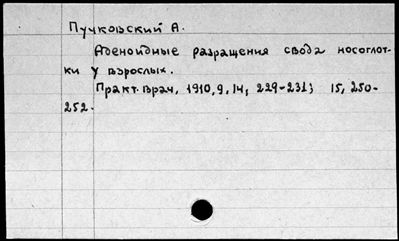 Пучковский А.
Аденоидные разращения свода носоглот-
ки у взрослых.
Практ. врач, 1910, 9, 14, 229-231; 15, 250-
252.